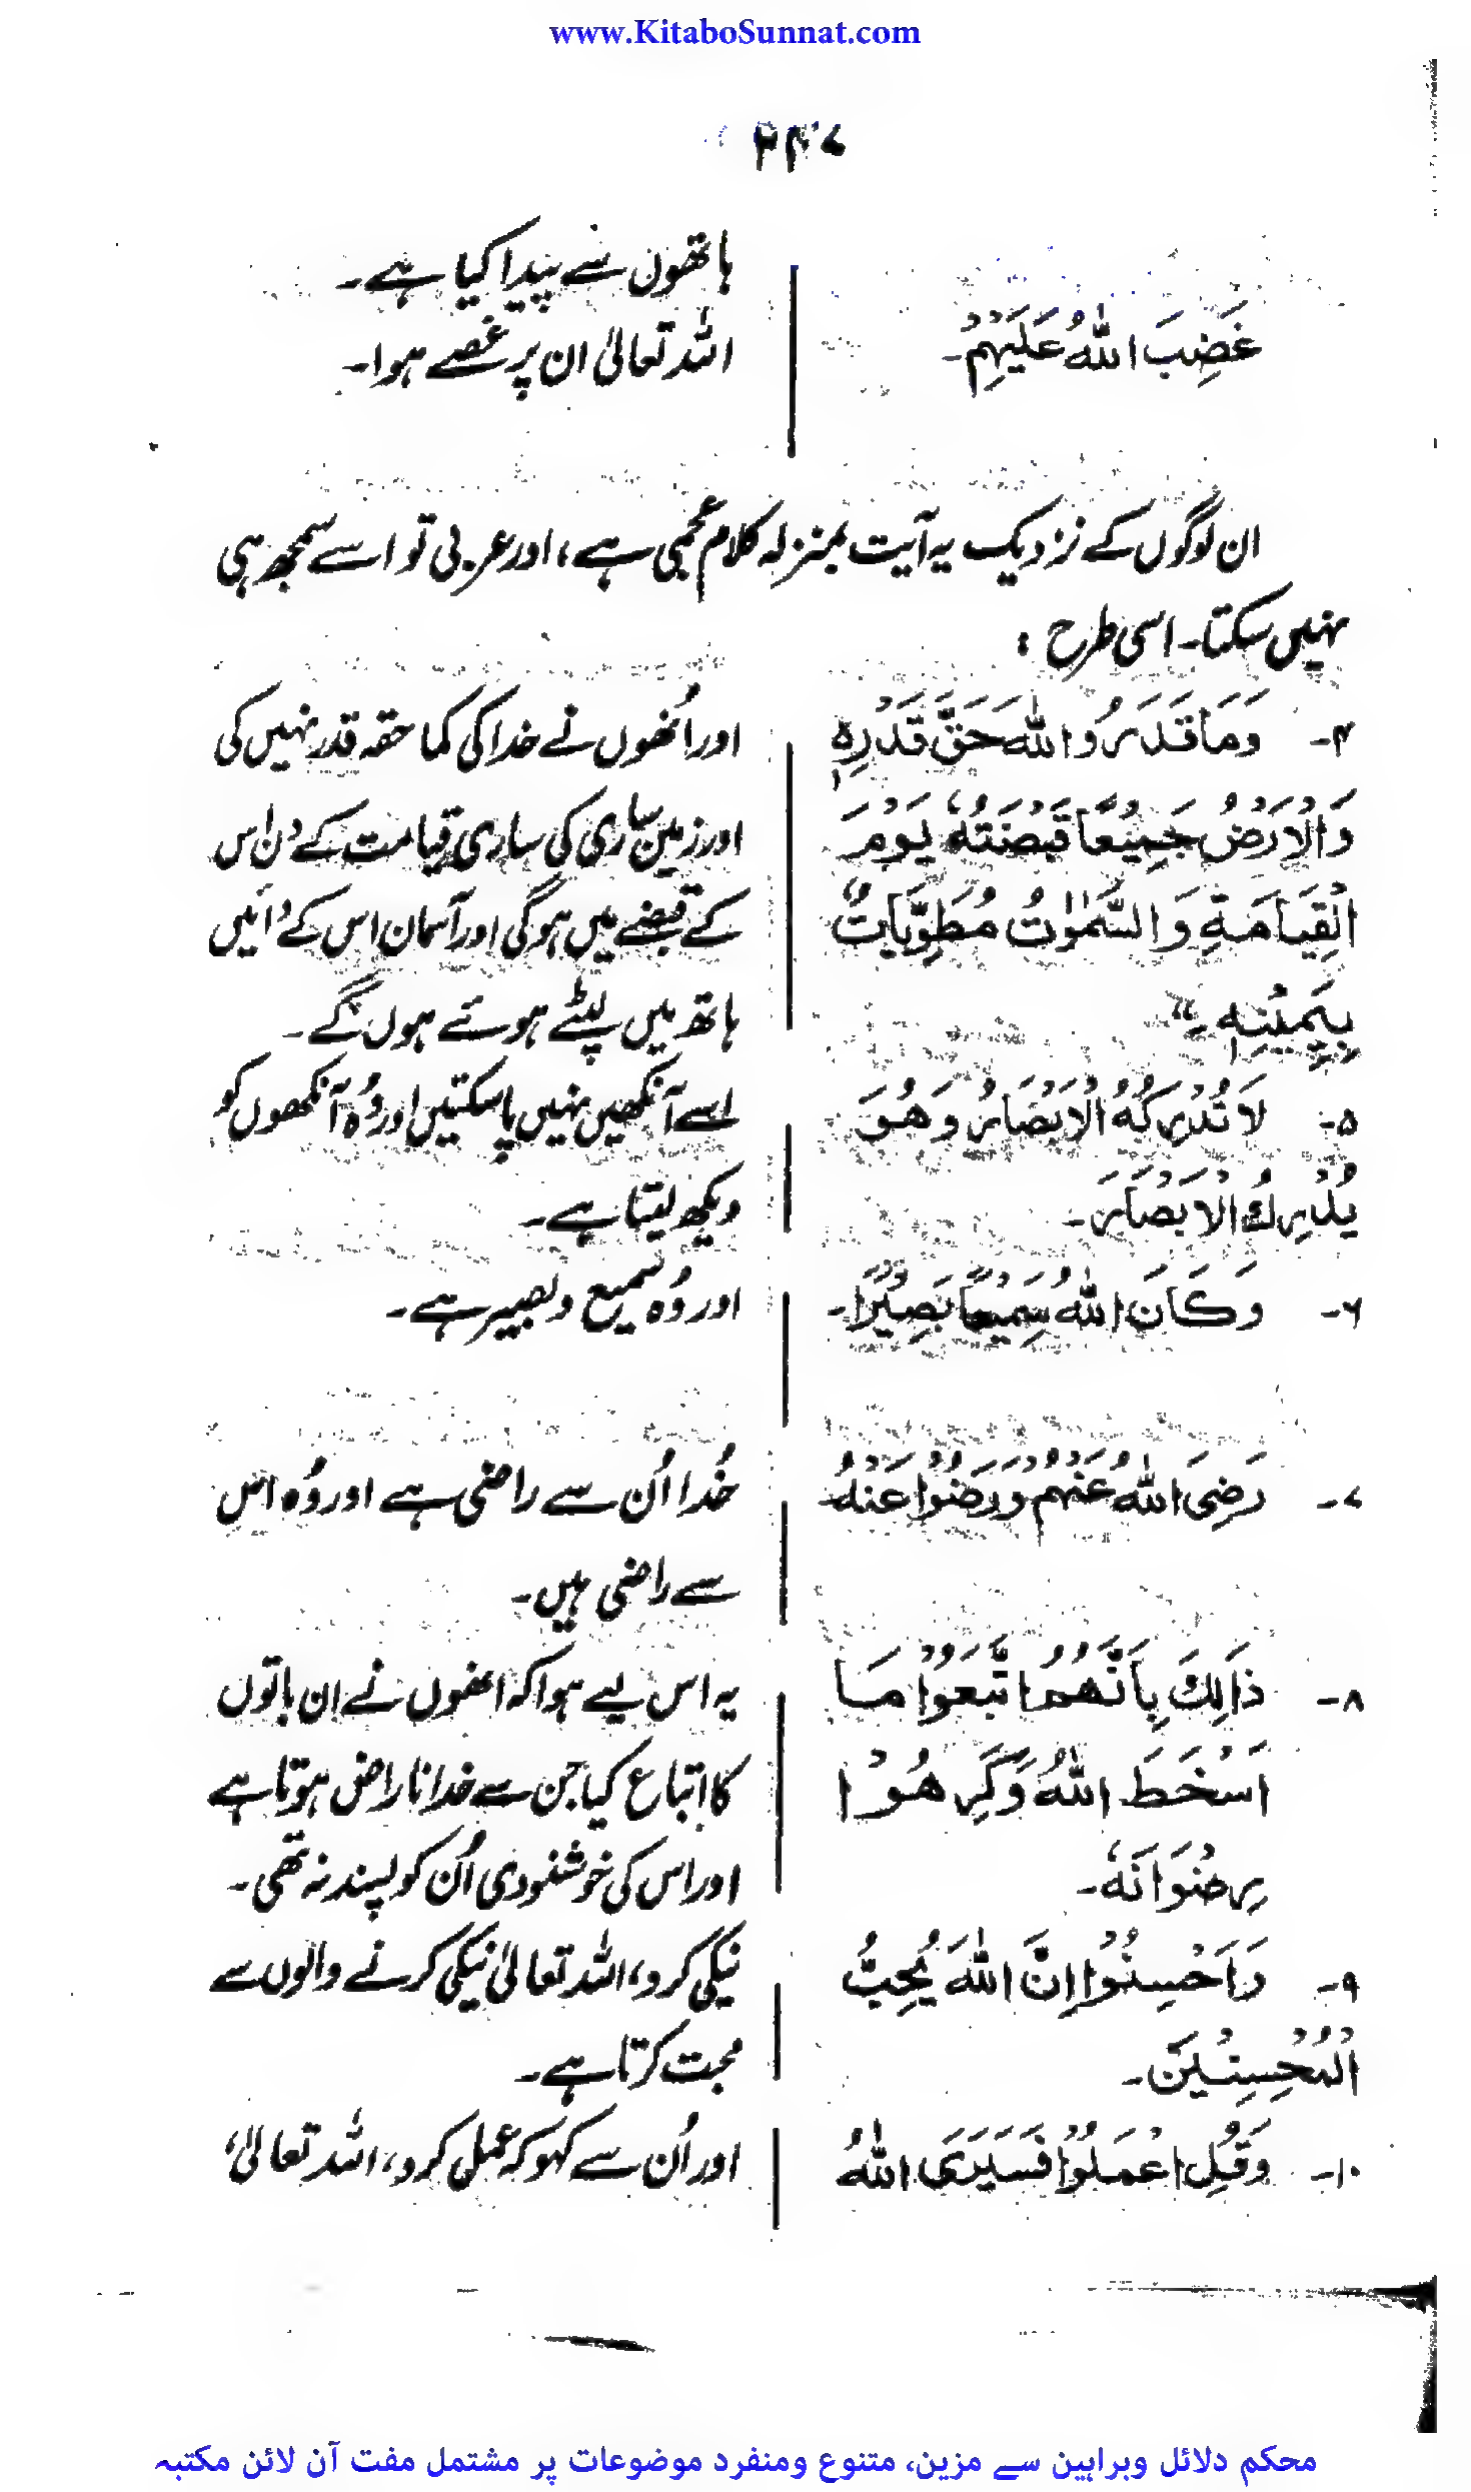 www.KitaboSunnat.com
۲۴۷
ہاتھوں سے پیدا کیا ہے۔
غَضِبَ اللهُ عَلَيْهِمْ۔
اللہ تعالیٰ ان پر غصے ہوا۔
ان لوگوں کے نزدیک یہ آیت بمنزلہ کلام عجمی ہے، اور عربی تو اسے سمجھ ہی
نہیں سکتا۔ اسی طرح :
۴۔ وَمَا قَدَرُوا اللهَ حَقَّ قَدْرِهٖ
وَالْاَرْضُ جَمِيْعًا قَبْضَتُهٗ يَوْمَ
الْقِيَامَةِ وَالسَّمٰوٰتُ مَطْوِيَّاتٌ
بِيَمِيْنِهٖ۔
اور اُنھوں نے خدا کی کما حقہ قدر نہیں کی
اور زمین ساری کی ساری قیامت کے دن اس
کے قبضے میں ہو گی اور آسمان اس کے دائیں
ہاتھ میں لپٹے ہوئے ہوں گے۔
۵۔ لَا تُدْرِكُهُ الْاَبْصَارُ وَهُوَ
يُدْرِكُ الْاَبْصَارَ۔
اسے آنکھیں نہیں پا سکتیں اور وُہ آنکھوں کو
دیکھ لیتا ہے۔
۶۔ وَكَانَ اللهُ سَمِيْعًا بَصِيْرًا۔
اور وُہ سمیع و بصیر ہے۔
۷۔ رَضِىَ اللهُ عَنْهُمْ وَرَضُوْا عَنْهُ
خُدا اُن سے راضی ہے اور وُہ اس
سے راضی ہیں۔
۸۔ ذَالِكَ بِاَنَّهُمُ اتَّبَعُوْا مَا
اَسْخَطَ اللهُ وَكَرِهُوْا
رِضْوَانَهٗ۔
یہ اس لیے ہوا کہ انھوں نے ان باتوں
کا اتباع کیا جن سے خدا ناراض ہوتا ہے
اور اس کی خوشنودی اُن کو پسند نہ تھی۔
۹۔ وَاَحْسِنُوْا اِنَّ اللهَ يُحِبُّ
الْمُحْسِنِيْنَ۔
نیکی کرو، اللہ تعالیٰ نیکی کرنے والوں سے
محبت کرتا ہے۔
۱۰۔ وَقُلِ اعْمَلُوْا فَسَيَرَى اللهُ
اور اُن سے کہو کہ عمل کرو، اللہ تعالیٰ،
محکم دلائل وبراہین سے مزین، متنوع ومنفرد موضوعات پر مشتمل مفت آن لائن مکتبہ